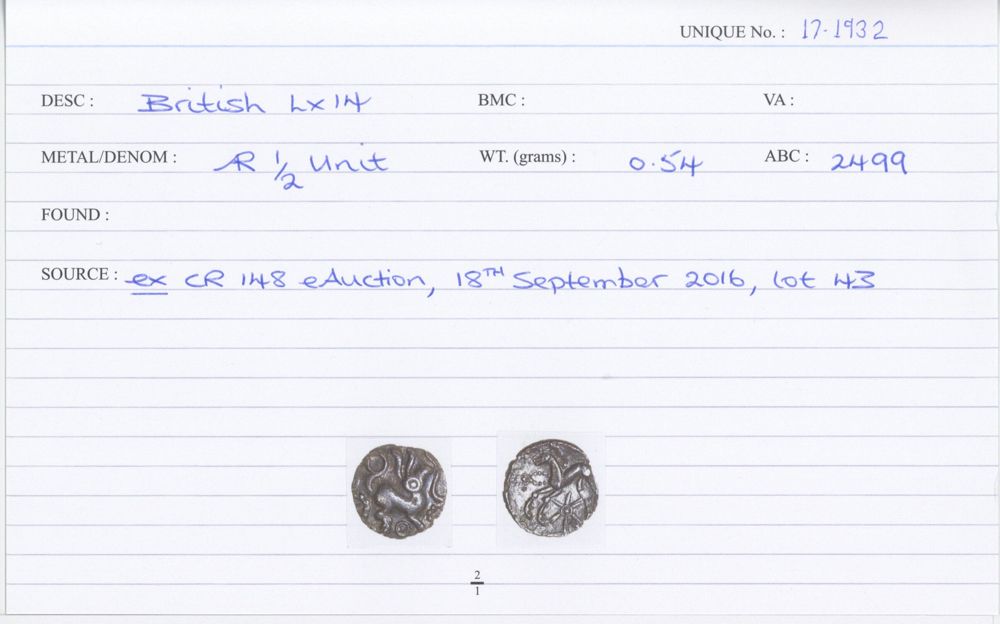 UNIQUE No. : 17.1932
DESC : British Lx14 BMC : VA :
METAL/DENOM : AR 1/2 Unit WT. (grams) : 0.54 ABC : 2499
FOUND :
SOURCE : ex CR 148 eAuction, 18TH September 2016, lot 43
2
1